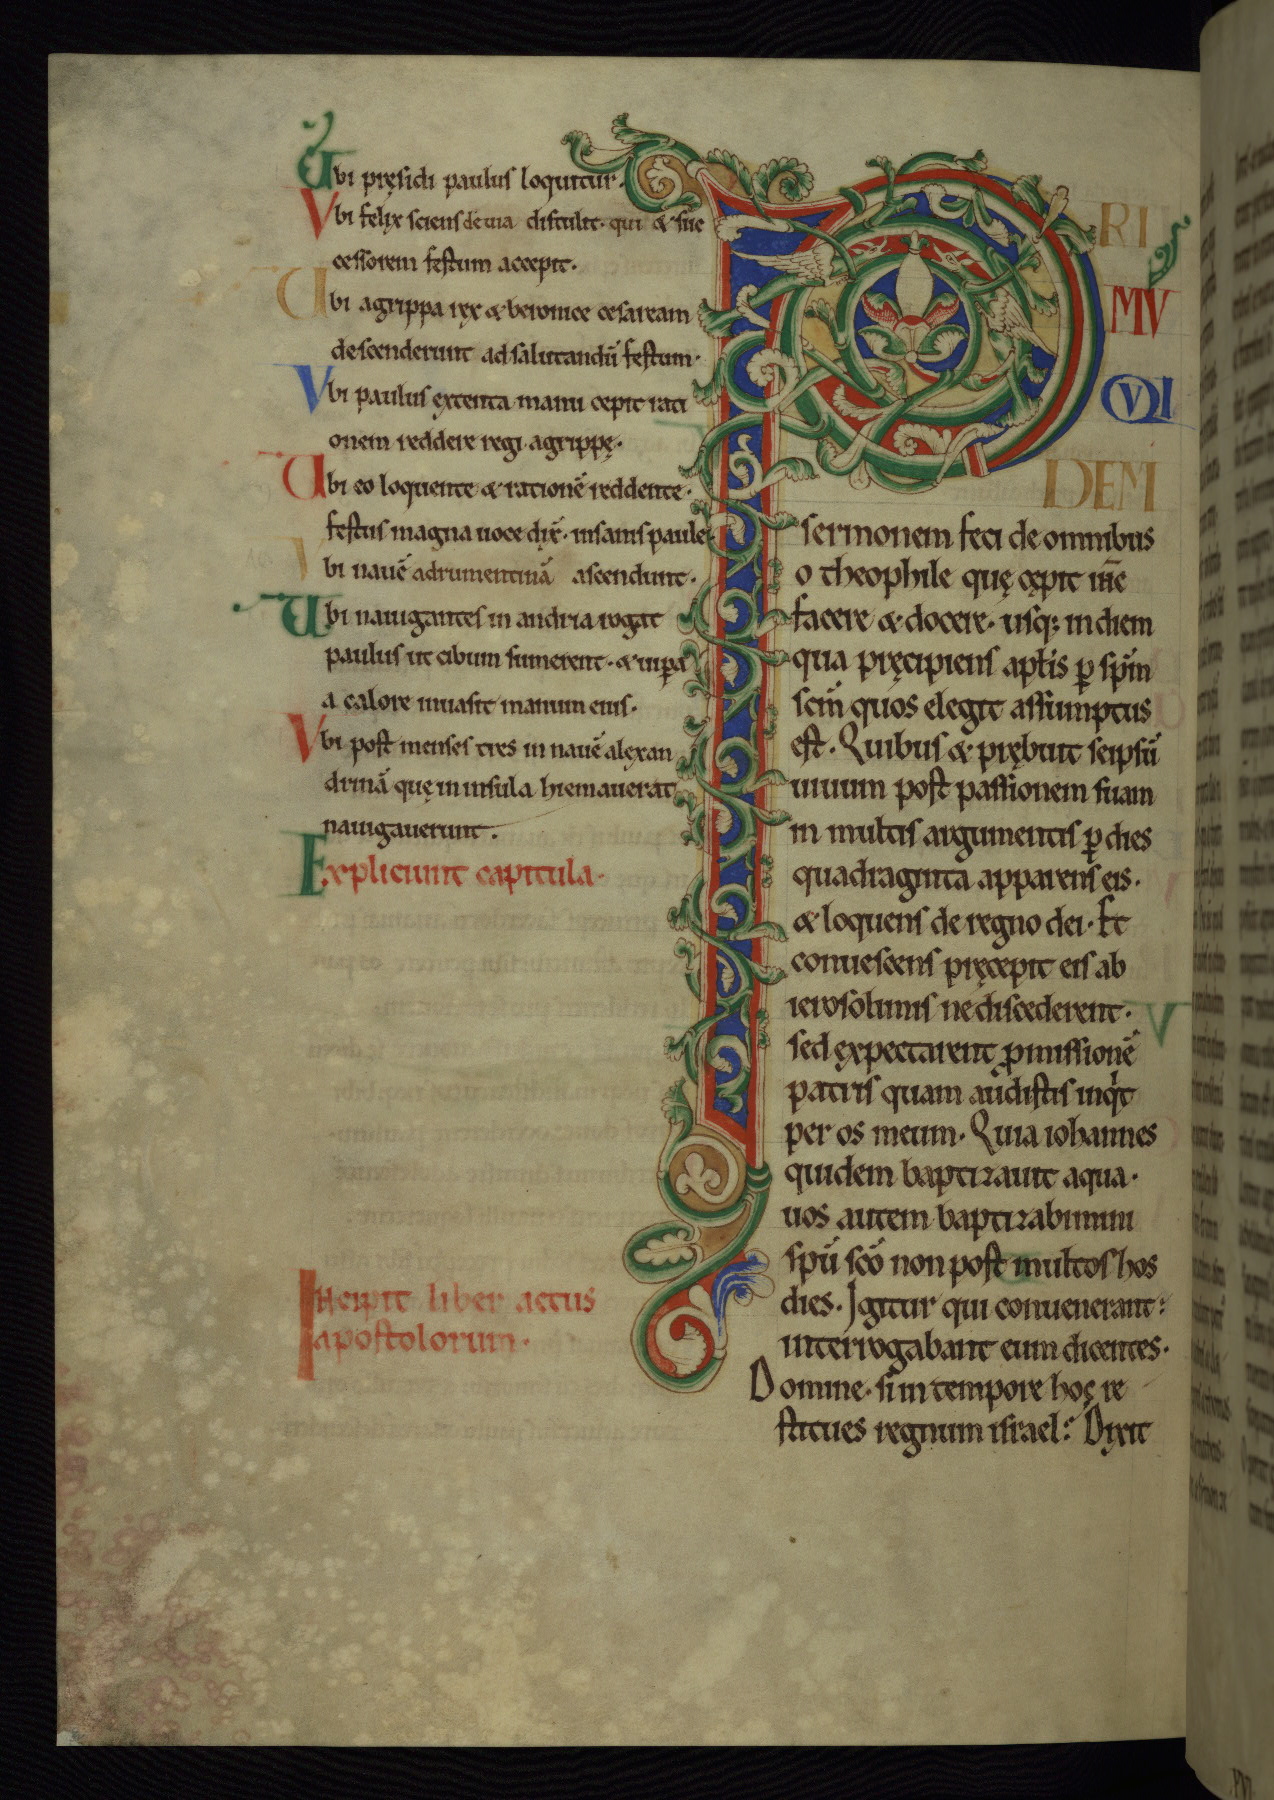 Ubi pręsidi paulus loquitur.
Vbi felix sciens de uia distulit· qui & suc
cessorem festum accepit·
Ubi agrippa rex & beronice cesaream
descenderunt ad salutandū festum·
Vbi paulus extenta manu cepit rati
onem reddere regi agrippę·
Ubi eo loquente & rationē reddente·
festus magna uoce dix̄· insanis paule
Vbi nauē adrumentinā ascendunt·
Ubi nauigantes in andria rogat
paulus ut cibum sumerent· & uipa
a calore inuasit manum eius·
Vbi post menses tres in nauē alexan
drinā quę in insula hiemauerat
nauigauerunt.
Expliciunt capitula·
Incipit liber actus
apostolorum·
PRI
MV
QVI
DEM
sermonem feci de omnibus
o theophile quę cępit ih̄c
facere & docere· usq; in diem
qua pręcipiens aptis p spm
scm̄ quos elegit assumptus
est· Quibus & prębuit seipsū
uiuum post passionem suam
in multis argumentis p dies
quadraginta apparens eis·
& loquens de regno dei· Et
conuescens pręcepit eis ab
ierosolimis ne discederent·
sed expectarent pmissionē
patris quam audistis inqt
per os meum· Quia iohannes
quidem baptizauit aqua·
uos autem baptizabimini
spū scō non post multos hos
dies· Igitur qui conuenerant:
interrogabant eum dicentes·
Domine· si in tempore hoc re
stitues regnum israel? Dixit